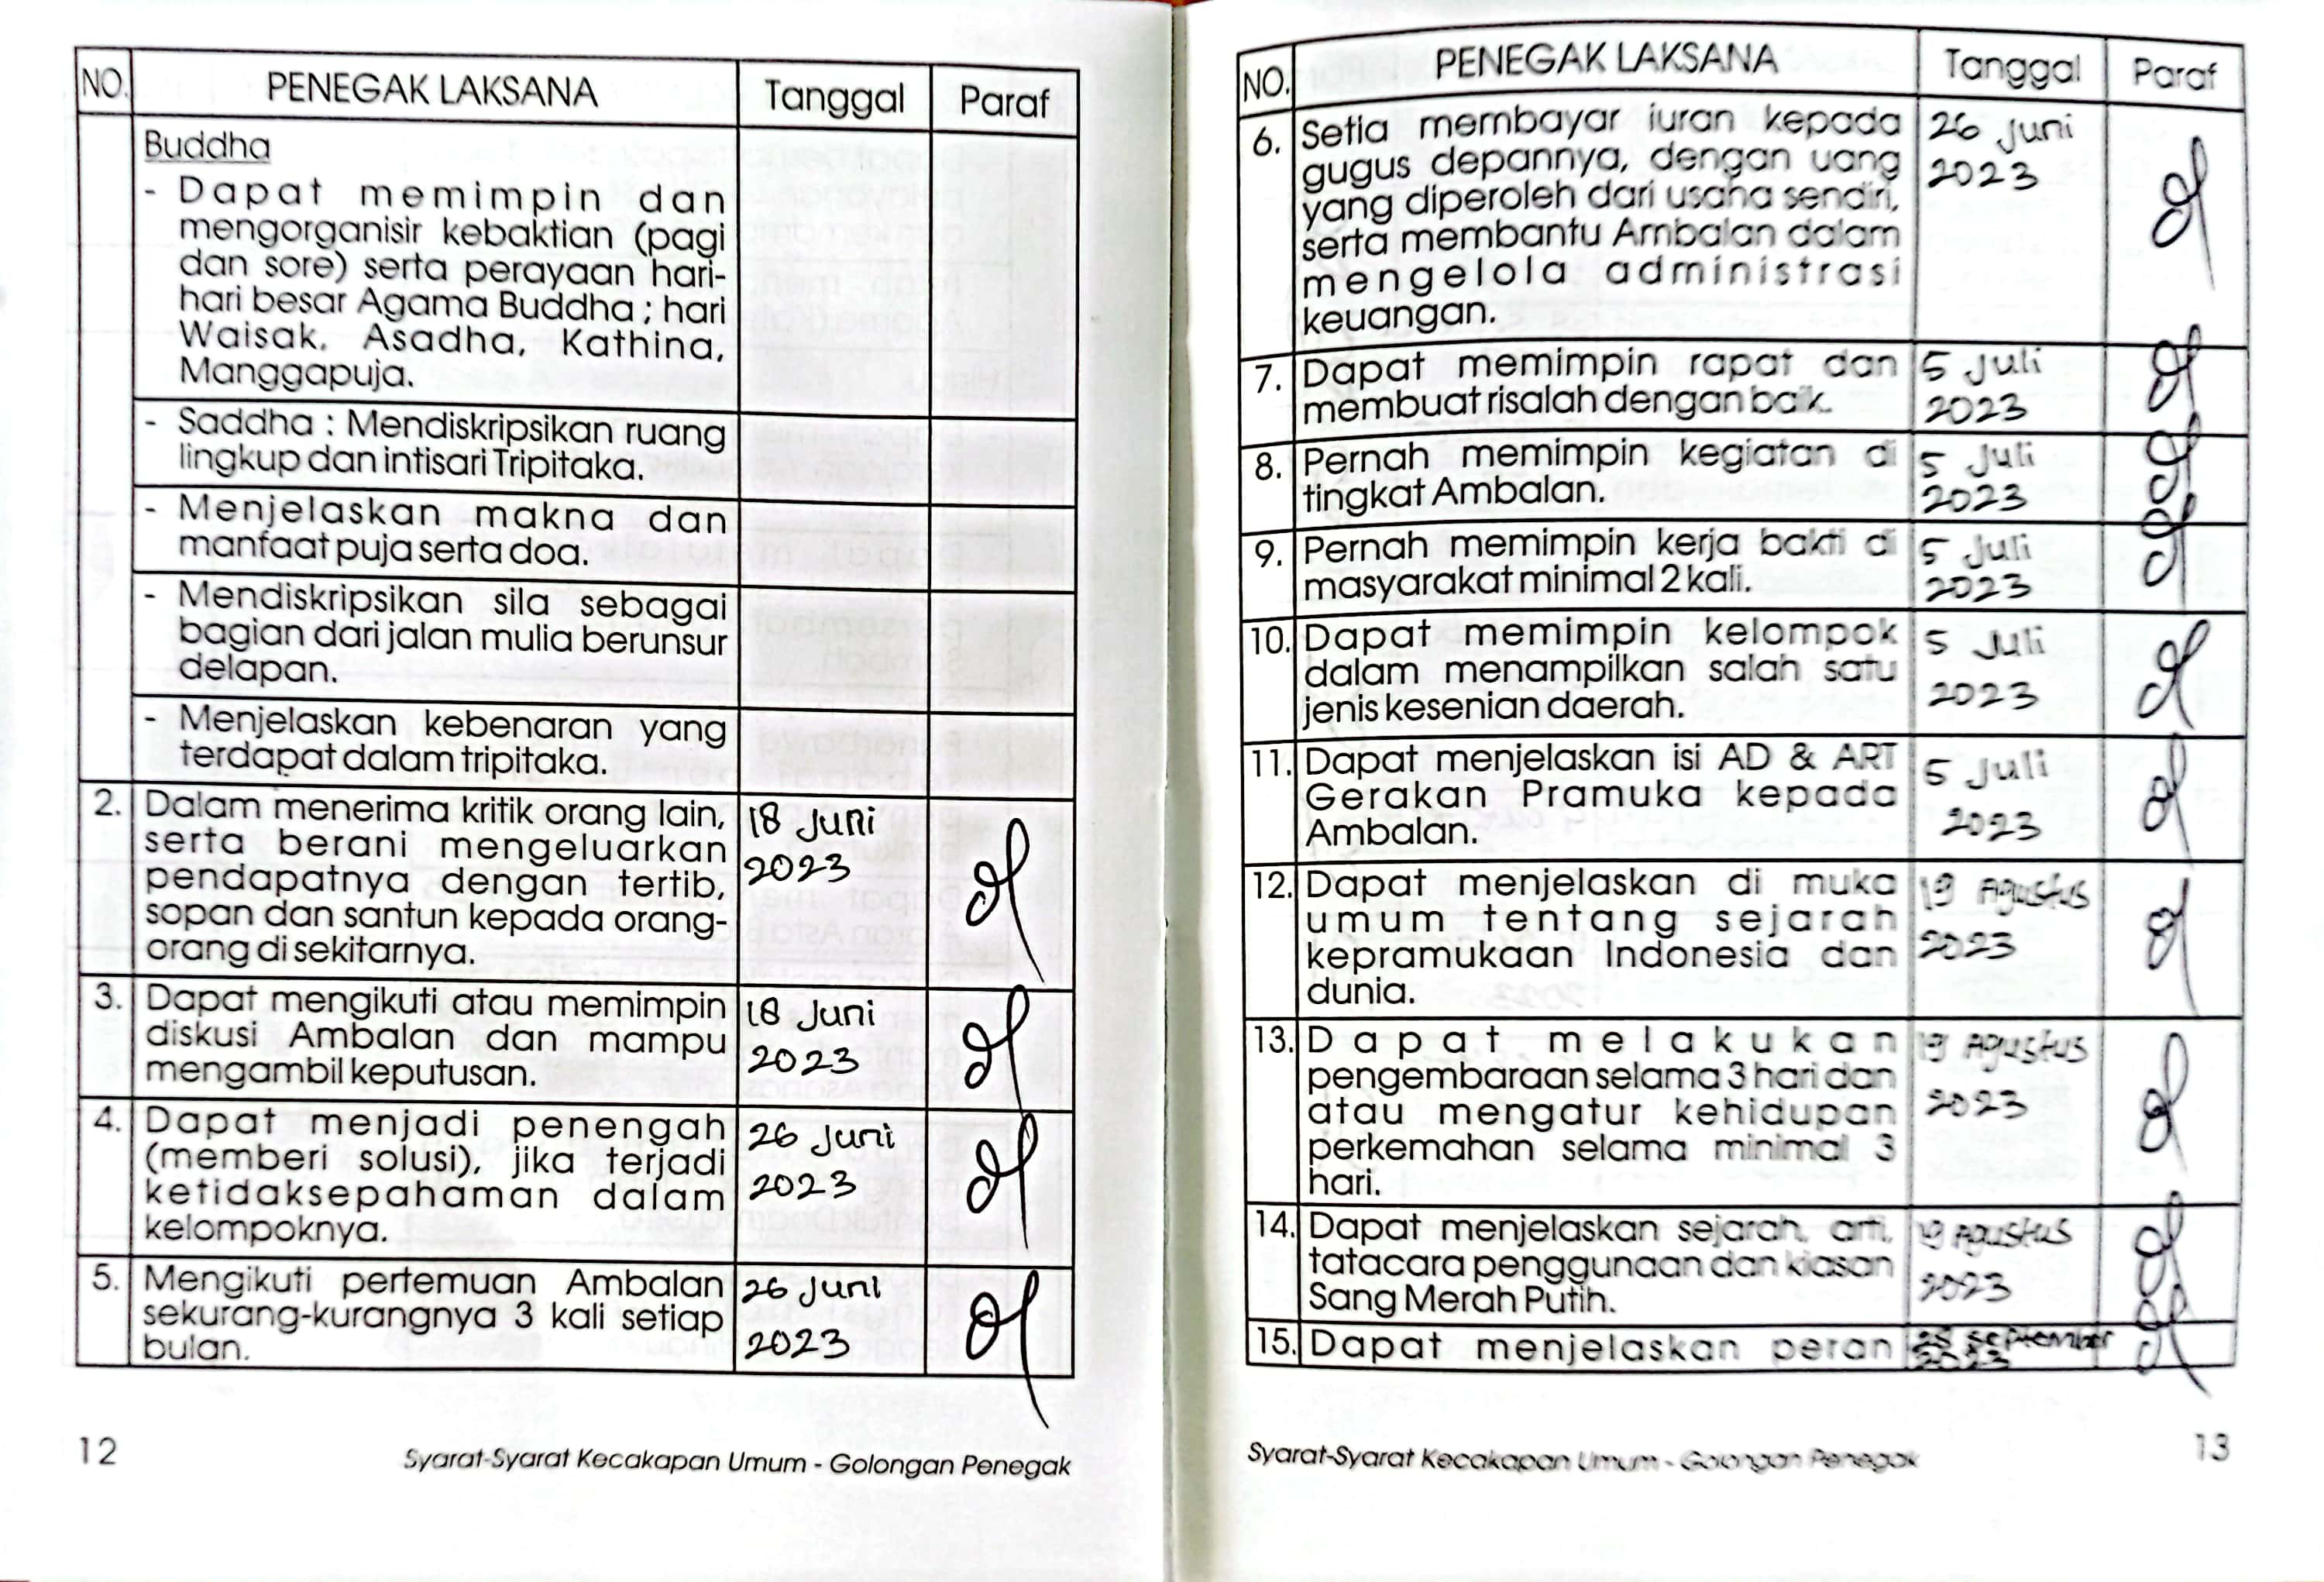 NO. PENEGAK LAKSANA Tanggal Paraf
Buddha
- Dapat memimpin dan
mengorganisir kebaktian (pagi
dan sore) serta perayaan hari-
hari besar Agama Buddha ; hari
Waisak, Asadha, Kathina,
Manggapuja.
- Saddha : Mendiskripsikan ruang
lingkup dan intisari Tripitaka.
- Menjelaskan makna dan
manfaat puja serta doa.
- Mendiskripsikan sila sebagai
bagian dari jalan mulia berunsur
delapan.
- Menjelaskan kebenaran yang
terdapat dalam tripitaka.
2. Dalam menerima kritik orang lain, 18 Juni
serta berani mengeluarkan
pendapatnya dengan tertib, 2023
sopan dan santun kepada orang-
orang di sekitarnya.
3. Dapat mengikuti atau memimpin 18 Juni
diskusi Ambalan dan mampu 2023
mengambil keputusan.
4. Dapat menjadi penengah 26 Juni
(memberi solusi), jika terjadi
ketidaksepahaman dalam 2023
kelompoknya.
5. Mengikuti pertemuan Ambalan 26 Juni
sekurang-kurangnya 3 kali setiap 2023
bulan.
12 Syarat-Syarat Kecakapan Umum - Golongan Penegak
NO. PENEGAK LAKSANA Tanggal Paraf
6. Setia membayar iuran kepada 26 Juni
gugus depannya, dengan uang 2023
yang diperoleh dari usaha sendiri,
serta membantu Ambalan dalam
mengelola administrasi
keuangan.
7. Dapat memimpin rapat dan 5 Juli
membuat risalah dengan baik. 2023
8. Pernah memimpin kegiatan di 5 Juli
tingkat Ambalan. 2023
9. Pernah memimpin kerja bakti di 5 Juli
masyarakat minimal 2 kali. 2023
10. Dapat memimpin kelompok 5 Juli
dalam menampilkan salah satu
jenis kesenian daerah. 2023
11. Dapat menjelaskan isi AD & ART 5 Juli
Gerakan Pramuka kepada
Ambalan. 2023
12. Dapat menjelaskan di muka 19 Agustus
umum tentang sejarah
kepramukaan Indonesia dan 2023
dunia.
13. Dapat melakukan 19 Agustus
pengembaraan selama 3 hari dan
atau mengatur kehidupan 2023
perkemahan selama minimal 3
hari.
14. Dapat menjelaskan sejarah, arti, 19 Agustus
tatacara penggunaan dan kiasan
Sang Merah Putih. 2023
15. Dapat menjelaskan peran September
2023
Syarat-Syarat Kecakapan Umum - Golongan Penegak 13